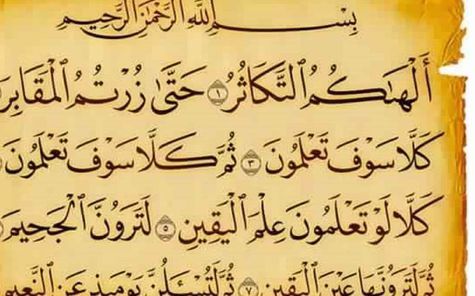 بِسْمِ اللَّهِ الرَّحْمَٰنِ الرَّحِيمِ
أَلْهَاكُمُ التَّكَاثُرُ ١ حَتَّىٰ زُرْتُمُ الْمَقَابِرَ
كَلَّا سَوْفَ تَعْلَمُونَ ٣ ثُمَّ كَلَّا سَوْفَ تَعْلَمُونَ
كَلَّا لَوْ تَعْلَمُونَ عِلْمَ الْيَقِينِ ٥ لَتَرَوُنَّ الْجَحِيمَ
ثُمَّ لَتَرَوُنَّهَا عَيْنَ الْيَقِينِ ٧ ثُمَّ لَتُسْأَلُنَّ يَوْمَئِذٍ عَنِ النَّعِيمِ